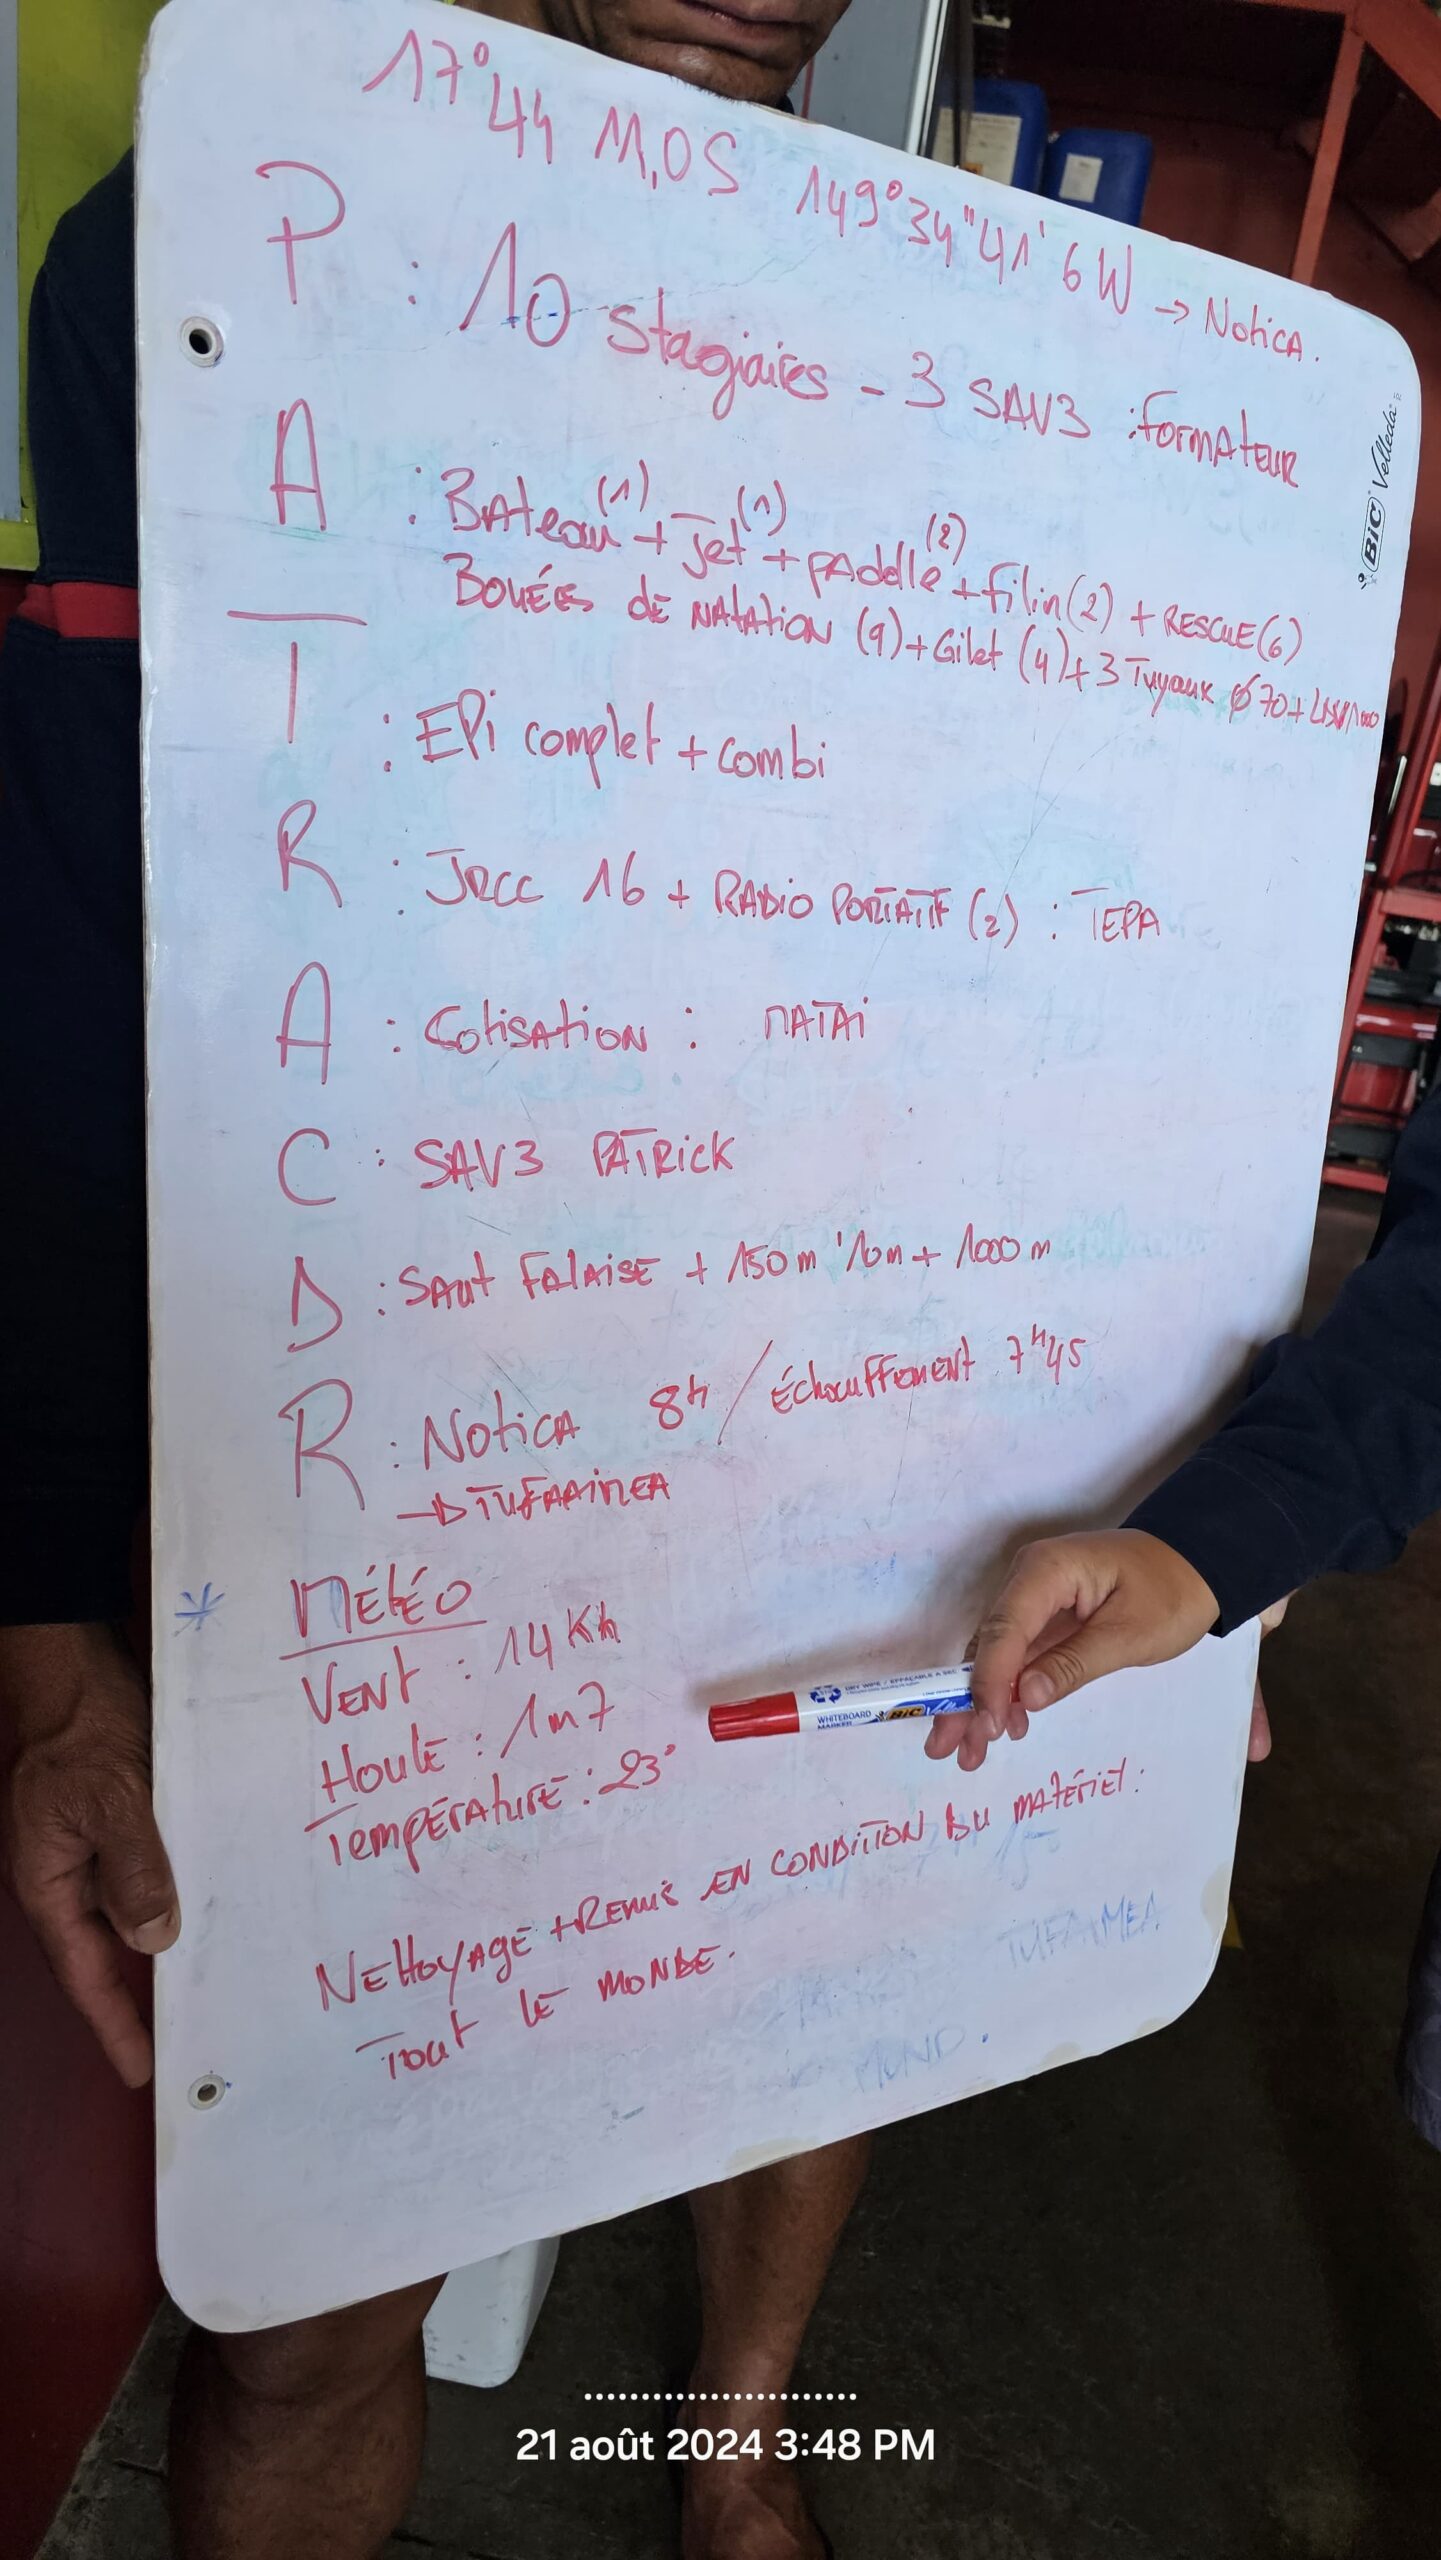 17°44 11,0S 149°34"41'6W → Notica.
P : 10 stagiaires - 3 SAV3 : FormATEUR
A : BAteau (1) + Jet (1) + pAddle (2) + filin (2) + RESCUE (6)
BOUÉES de NATATION (9) + Gilet (4) + 3 Tuyaux ø 70 +
T : EPi complet + combi
R : JRCC 16 + RADIO PORTATIF (2) : TEPA
A : Cotisation : MATAi
C : SAV3 PATRICK
D : SAut FALAISE + 150 m '10m + 1000 m
R : NoticA 8h / ÉchauffemENT 7h45
→ TUFAAIMEA
MÉtÉO
VENt : 14 Kh
Houle : 1m7
TempÉRAturE : 23°
NEttoyAgE + REmis EN CONDIITION DU MATÉRIEl :
Tout lE MONDE.
TUFAIMEA
MOND.
BIC Velleda
DRY WIPE / EFFAÇABLE A SEC
WHITEBOARD MARKER BIC Velleda
21 août 2024 3:48 PM